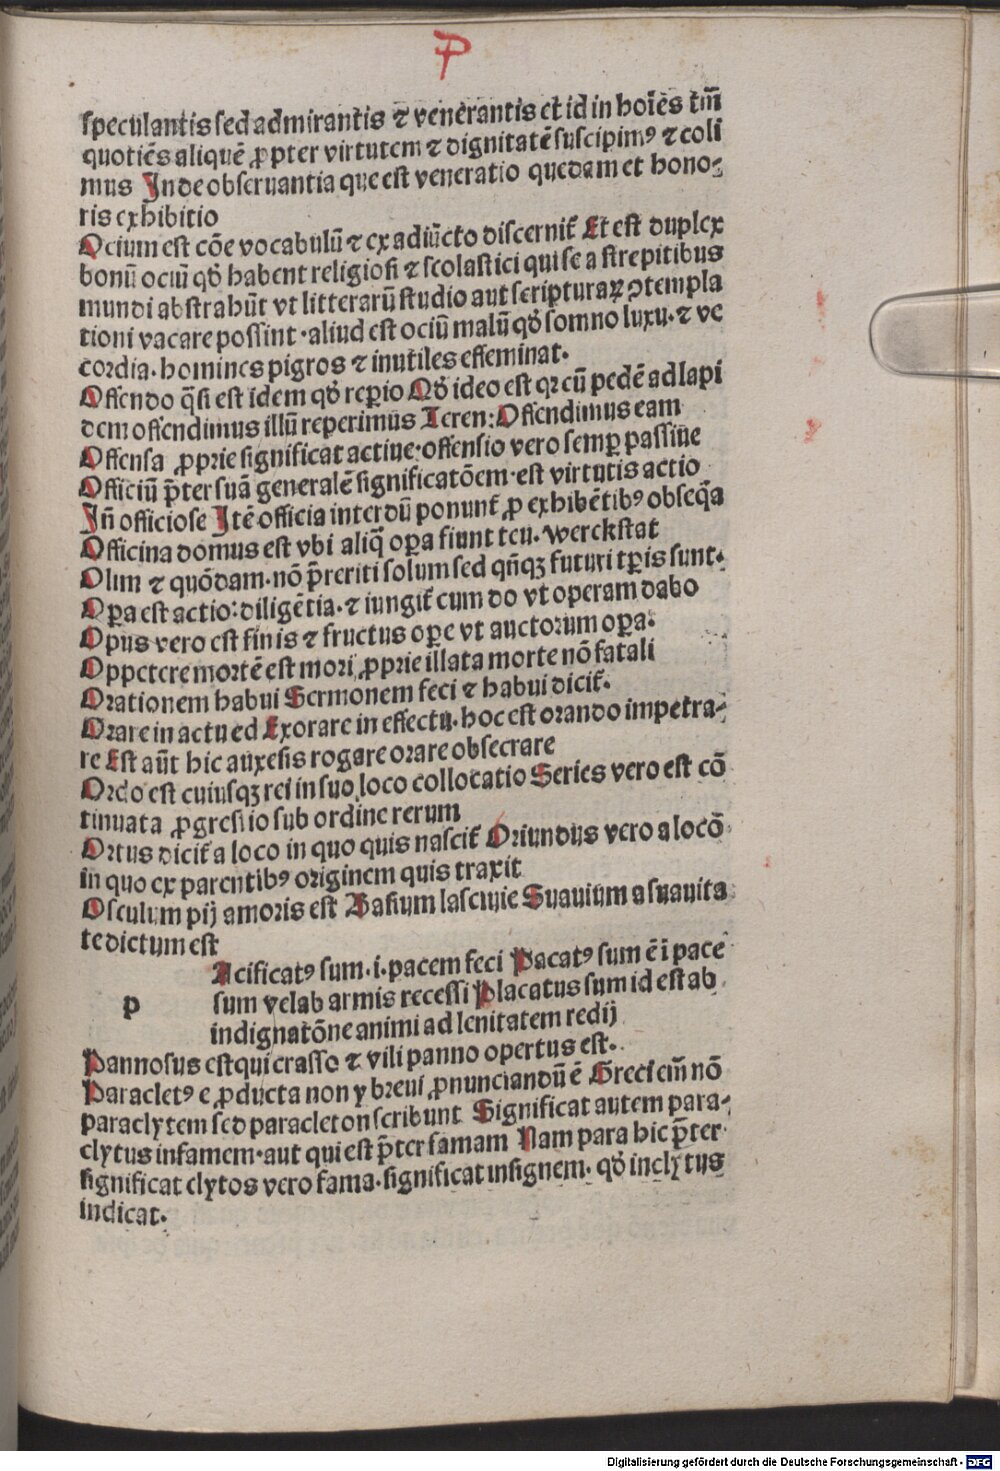 P
speculantis sed admirantis ⁊ venerantis et id in hoı̄es tm̄
quotiēs aliquē ꝓpter virtutem ⁊ dignitatē suscipimꝰ ⁊ coli
mus Inde obseruantia que est veneratio quedam et hono⸗
ris exhibitio
Ocium est cōe vocabulū ⁊ ex adiūcto discernit̄ Et est duplex
bonū ociū qd̄ habent religiosi ⁊ scolastici qui se a strepitibus
mundi abstrahūt vt litterarū studio aut scripturaꝝ ꝯtempla
tioni vacare possint · aliud est ociū malū qd̄ somno luxu. ⁊ ve
cordia. homines pigros ⁊ inutiles effeminat.
Offendo q̄si est idem qd̄ reꝑio Qd̄ ideo est qꝛ cū pedē ad lapi
dem offendimus illū reperimus Teren: Offendimus eam
Offensa ꝓprie significat actiue · offensio vero semꝑ passiue
Officiū p̄ter suā generalē significatōem · est virtutis actio
Iñ officiose Itē officia interdū ponunt̄ ꝓ exhibētibꝰ obseq̄a
Officina domus est vbi aliq̄ oꝑa fiunt teu. werckstat
Olim ⁊ quōdam. nō p̄teriti solum sed qn̄qꝫ futuri tꝑis sunt.
Oꝑa est actio: diligētia. ⁊ iungit̄ cum do vt operam dabo
Opus vero est finis ⁊ fructus oꝑe vt auctorum oꝑa.
Oppetere mortē est mori ꝓprie illata morte nō fatali
Orationem habui Sermonem feci ⁊ habui dicit̄.
Orare in actu ed Exorare in effectu. hoc est orando impetra⸗
re Est aūt hic auxesis rogare orare obsecrare
Ordo est cuiusqꝫ rei in suo loco collocatio Series vero est cō
tinuata ꝓgressio sub ordine rerum
Ortus dicit̄ a loco in quo quis nascit̄ Oriundus vero a locō
in quo ex parentibꝰ originem quis traxit
Osculum pij amoris est Basium lasciuie Suauium a suauita
te dictum est
Acificatꝰ sum. i. pacem feci Pacatꝰ sum ē i pace
p sum vel ab armis recessi Placatus sum id est ab
indignatōne animi ad lenitatem redij
Pannosus est qui crasso ⁊ vili panno opertus est.
Paracletꝰ e ꝓducta non y breui ꝓnunciandū ē Greci em̄ nō
paraclytem sed paracleton scribunt Significat autem para⸗
clytus infamem. aut qui est p̄ter famam Nam para hic p̄ter
significat clytos vero fama. significat insignem. qd̄ inclytus
indicat.
Digitalisierung gefördert durch die Deutsche Forschungsgemeinschaft - DFG